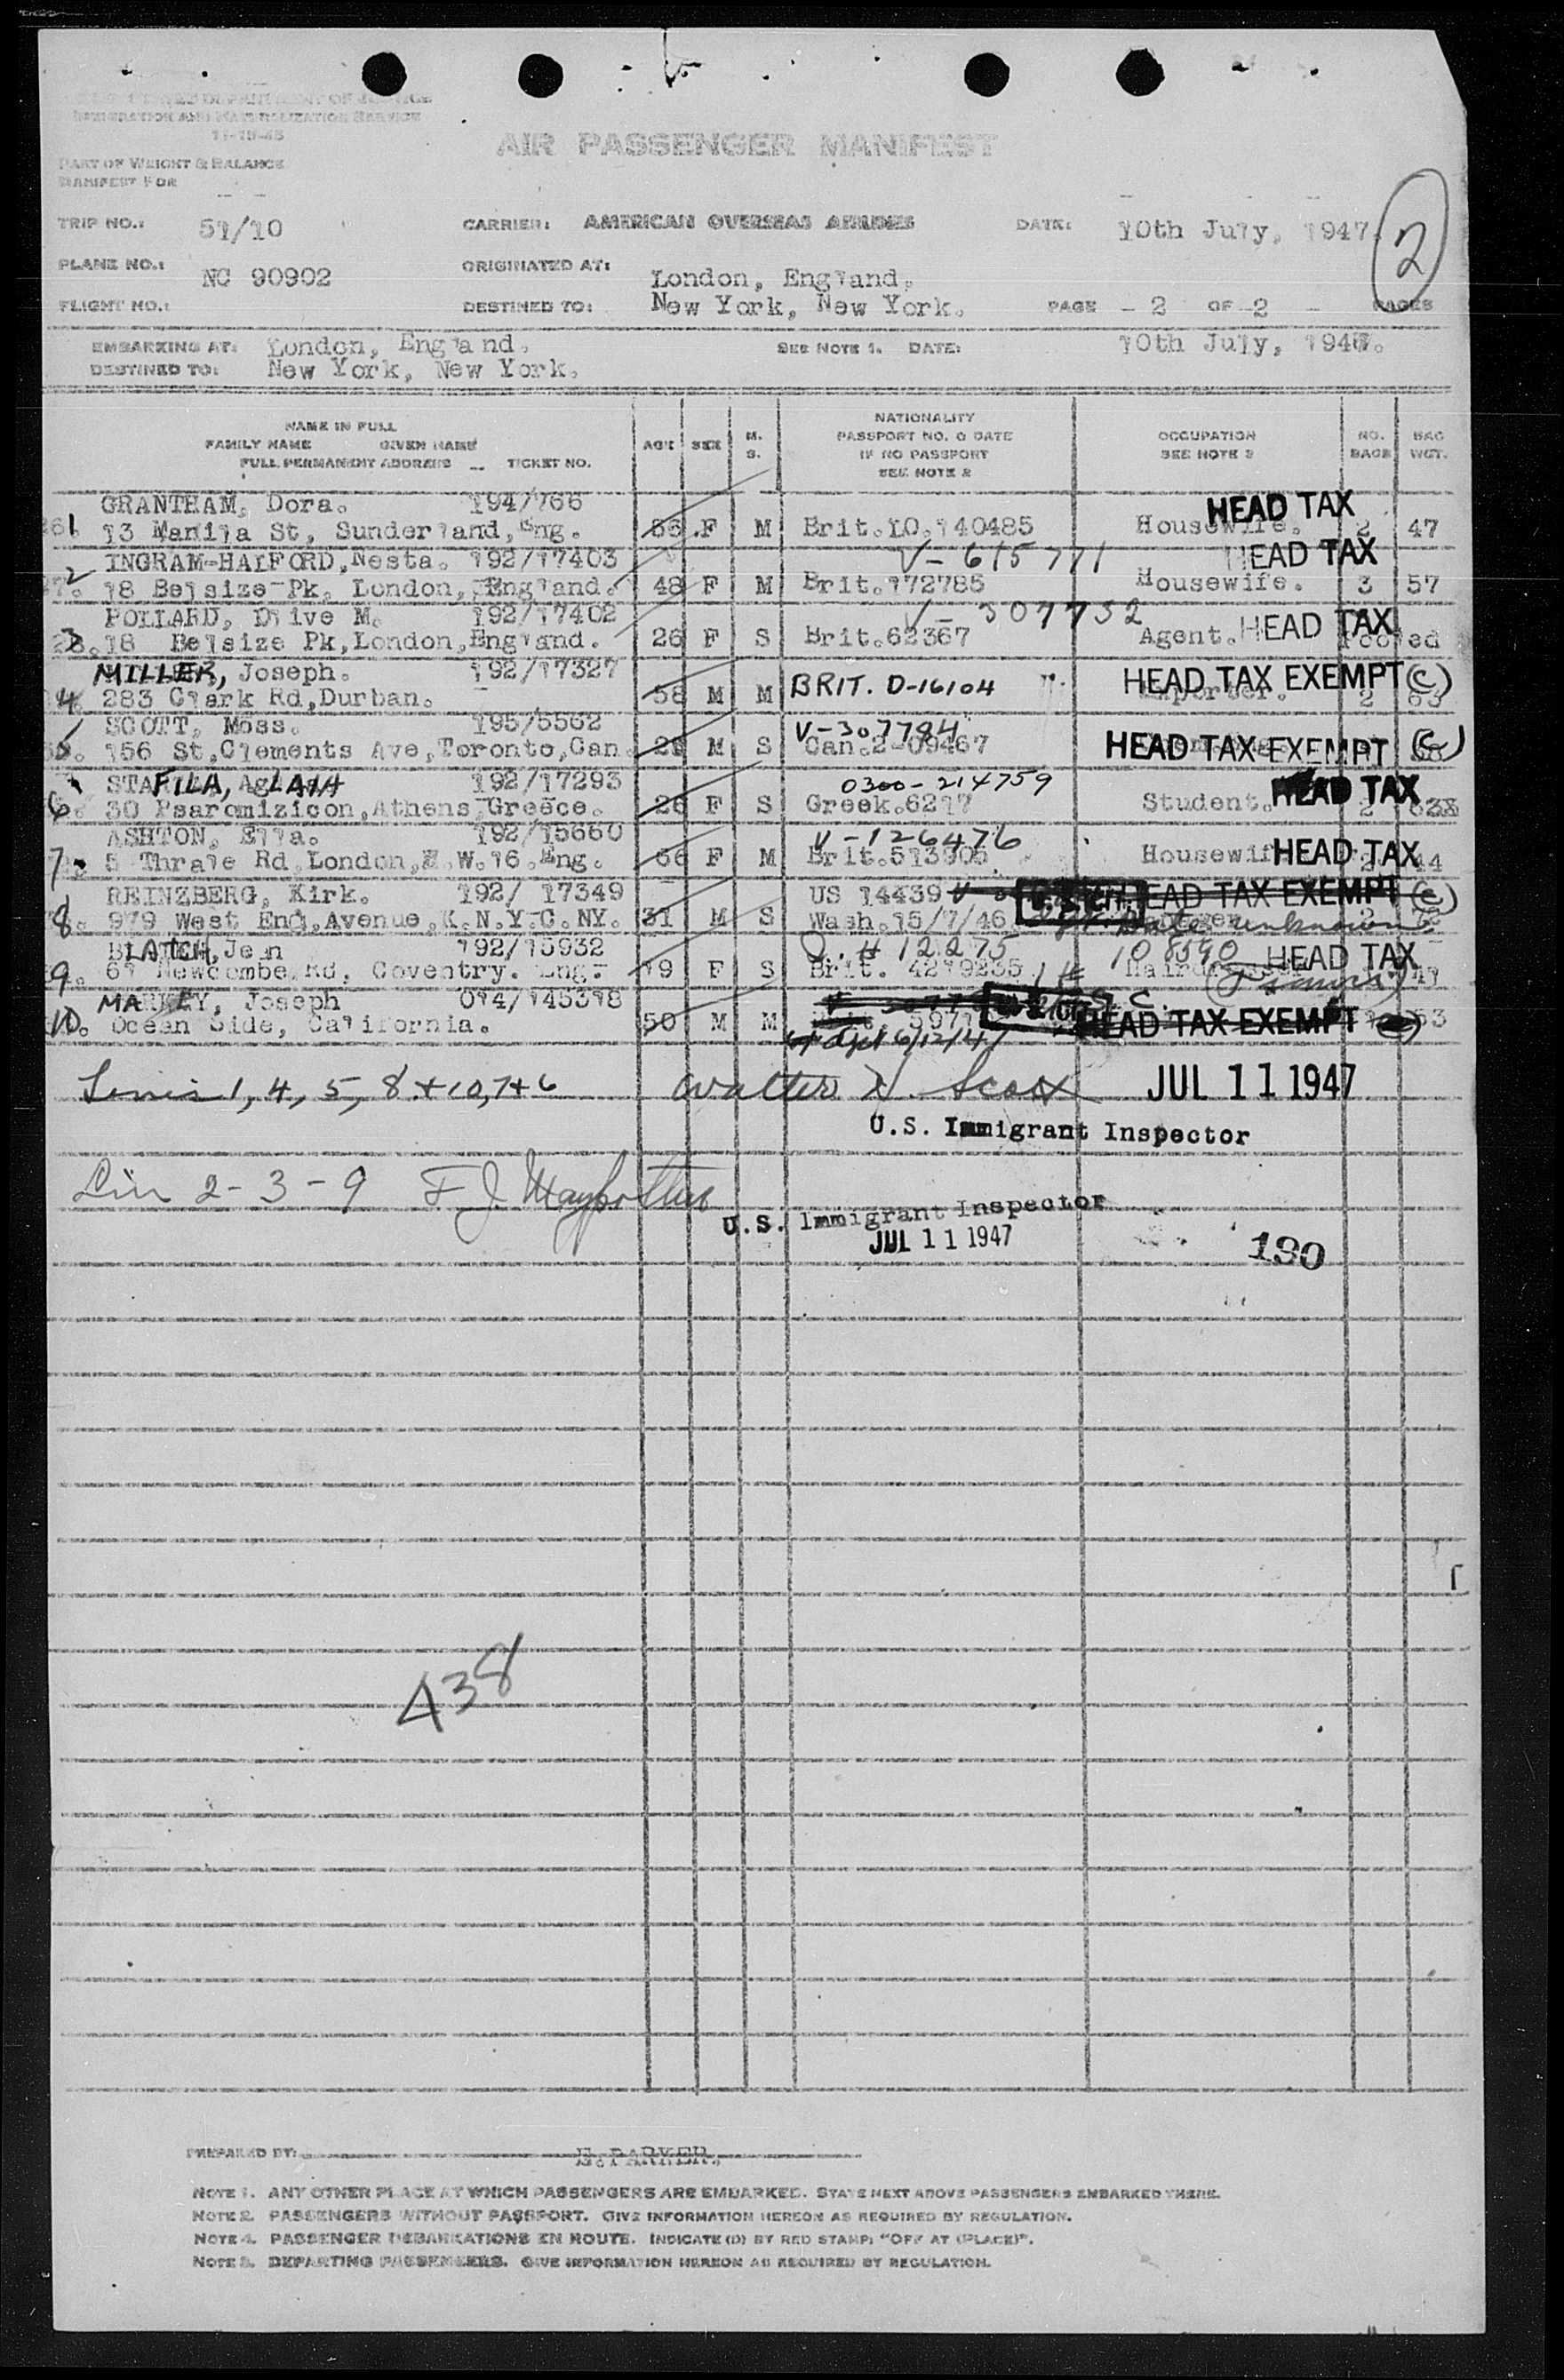 UNITED DEPARTMENT OF JUSTICE
IMMIGRATION AND NATURALIZATION SERVICE
11-15-45
AIR PASSENGER MANIFEST
PART OF WEIGHT & BALANCE
MANIFEST FOR
TRIP NO.: 51/10 CARRIER: AMERICAN OVERSEAS AIRLINES DATE: 10th July, 1947. 2
PLANE NO.: NC 90902 ORIGINATED AT: London, England.
FLIGHT NO.: DESTINED TO: New York, New York. PAGE - 2 OF -2 - PAGES
EMBARKING AT: London, England. SEE NOTE 1. DATE: 10th July, 1947.
DESTINED TO: New York, New York.
NAME IN FULL
FAMILY NAME GIVEN NAME
FULL PERMANENT ADDRESS TICKET NO.
AGE SEX M. S.
NATIONALITY
PASSPORT NO. & DATE
IF NO PASSPORT
SEE NOTE 2
OCCUPATION
SEE NOTE 2
NO. BAGS
BAG WGT.
GRANTHAM, Dora. 194/766 HEAD TAX
1 13 Manila St, Sunderland, Eng. 56 F M Brit.I0.140485 Housewife. 2 47
INGRAM-HALFORD, Nesta. 192/17403 V-615771 HEAD TAX
2 18 Belsize Pk, London, England. 48 F M Brit.172785 Housewife. 3 57
POLLARD, Olive M. 192/17402 V-307752 HEAD TAX
3 18 Belsize Pk, London, England. 26 F S Brit.62367 Agent. Pooled
MILLER, Joseph. 192/17327 BRIT. D-16104 HEAD TAX EXEMPT (C)
4 283 Clark Rd, Durban. 58 M M 2 63
SCOTT, Moss. 195/5562 V-307794
5 156 St. Clements Ave, Toronto, Can. M S Can.2-09467 HEAD TAX EXEMPT (C)
STAFILA, AgLAIA 192/17293 0300-214759 HEAD TAX
6. 30 Psaromizicon, Athens, Greece. 26 F S Greek.6217 Student. 2
ASHTON, Ella. 192/15660 V-126476
7 5 Thrale Rd, London, S.W.16. Eng. 56 F M Brit.513905 Housewife HEAD TAX 44
REINZBERG, Kirk. 192/ 17349 US 14439 HEAD TAX EXEMPT (C)
8. 979 West End, Avenue, K.N.Y.C.NY. 31 M S Wash.15/7/46 Date unknown
BLATCH, Jean 192/15932 Q.# 12275 108590 HEAD TAX
9. 61 Newcombe Rd, Coventry. Eng. 19 F S Brit. 4279235
MARKEY, Joseph 014/145318
10. Ocean Side, California. 50 M M HEAD TAX EXEMPT 53
Lines 1, 4, 5, 8 + 10, 7 + 6 Walter N. Scott JUL 11 1947
U.S. Immigrant Inspector
Lin 2-3-9
U.S. Immigrant Inspector
JUL 11 1947
130
438
PREPARED BY: E. PARKER.
NOTE 1. ANY OTHER PLACE AT WHICH PASSENGERS ARE EMBARKED. STATE NEXT ABOVE PASSENGERS EMBARKED THERE.
NOTE 2. PASSENGERS WITHOUT PASSPORT. GIVE INFORMATION HEREON AS REQUIRED BY REGULATION.
NOTE 4. PASSENGER DEBARKATIONS EN ROUTE. INDICATE (D) BY RED STAMP: "OFF AT (PLACE)".
NOTE 5. DEPARTING PASSENGERS. GIVE INFORMATION HEREON AS REQUIRED BY REGULATION.